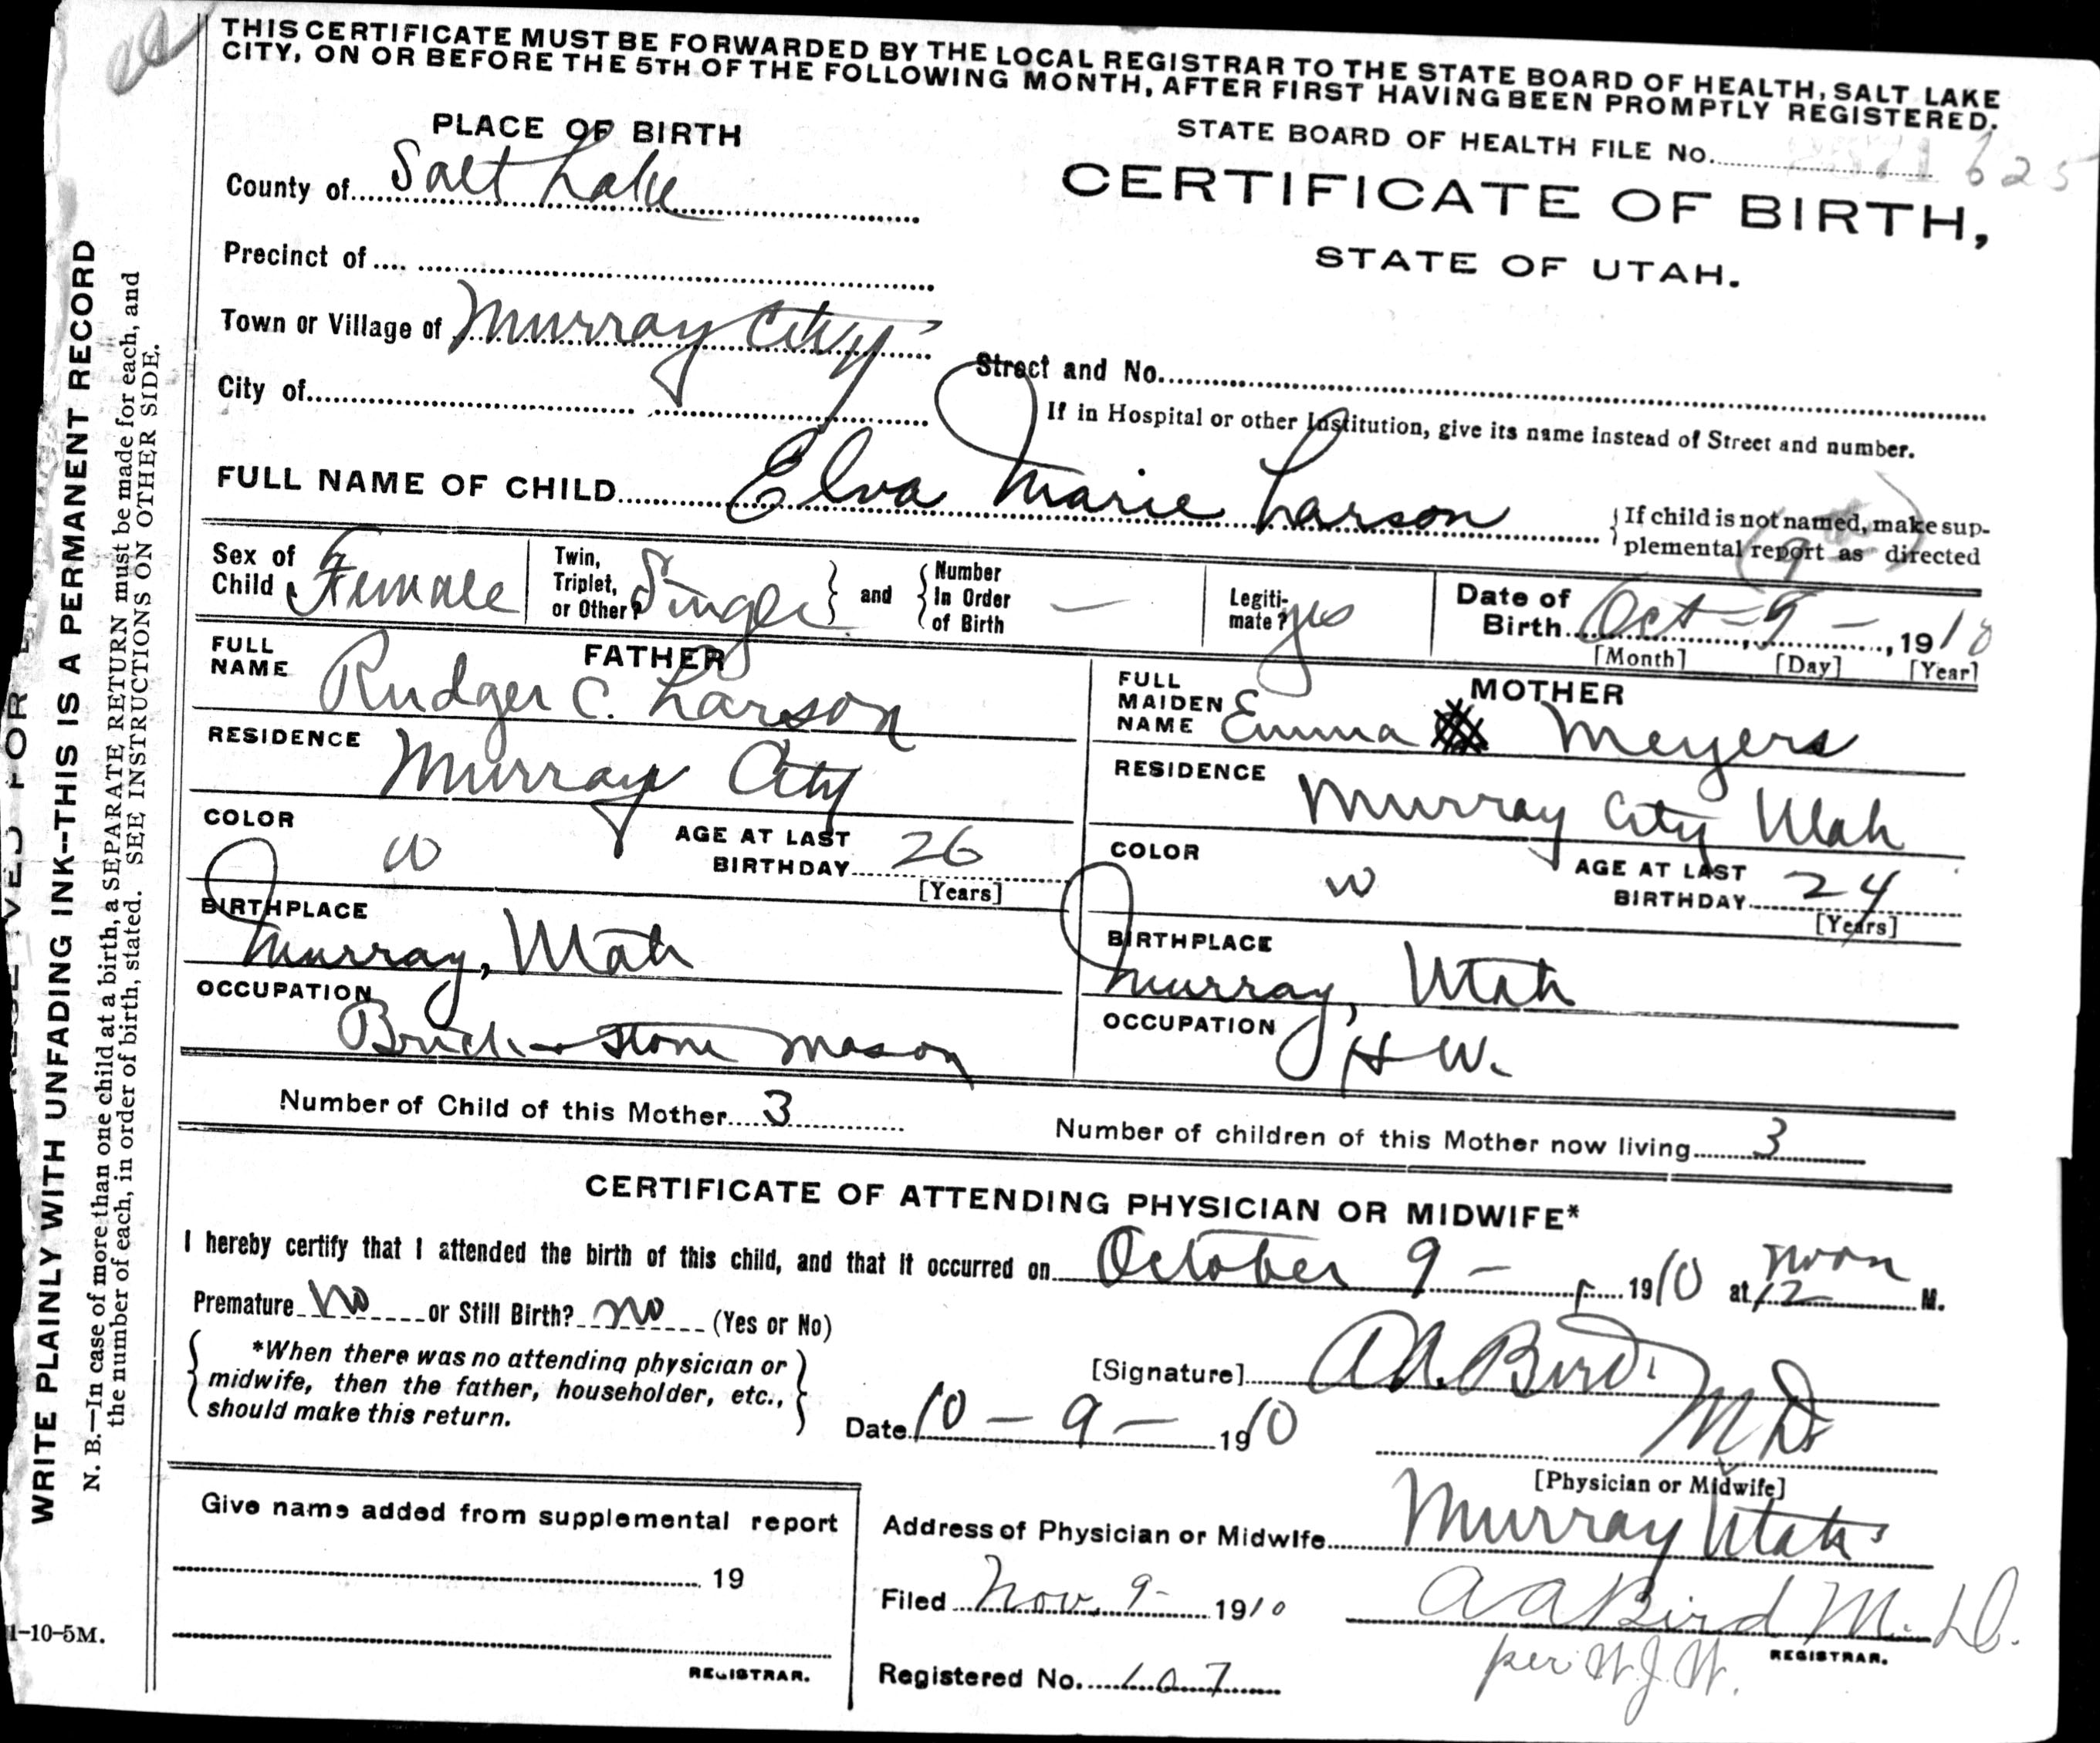 THIS CERTIFICATE MUST BE FORWARDED BY THE LOCAL REGISTRAR TO THE STATE BOARD OF HEALTH, SALT LAKE
CITY, ON OR BEFORE THE 5TH OF THE FOLLOWING MONTH, AFTER FIRST HAVING BEEN PROMPTLY REGISTERED.
PLACE OF BIRTH
STATE BOARD OF HEALTH FILE No. 625
County of Salt Lake
CERTIFICATE OF BIRTH,
STATE OF UTAH.
Precinct of
Town or Village of Murray City
Street and No.
City of
If in Hospital or other Institution, give its name instead of Street and number.
FULL NAME OF CHILD Elva Marie Larson
{If child is not named, make sup-
plemental report as directed
Sex of Child Female
Twin, Triplet, or Other? Single } and { Number In Order of Birth —
Legiti-mate? yes
Date of Birth Oct - 9 - , 1910
[Month] [Day] [Year]
FATHER
FULL NAME Rudger C. Larson
MOTHER
FULL MAIDEN NAME Emma Meyers
RESIDENCE Murray City
RESIDENCE Murray City Utah
COLOR W
AGE AT LAST BIRTHDAY 26
[Years]
COLOR W
AGE AT LAST BIRTHDAY 24
[Years]
BIRTHPLACE Murray, Utah
BIRTHPLACE Murray, Utah
OCCUPATION Brick & Stone Mason
OCCUPATION H W.
Number of Child of this Mother 3
Number of children of this Mother now living 3
CERTIFICATE OF ATTENDING PHYSICIAN OR MIDWIFE*
I hereby certify that I attended the birth of this child, and that it occurred on October 9 - , 1910 at 12 noon M.
Premature No or Still Birth? no (Yes or No)
*When there was no attending physician or
midwife, then the father, householder, etc.,
should make this return.
[Signature] A A. Bird.
M D.
[Physician or Midwife]
Date 10 - 9 - 1910
Give name added from supplemental report
19
REGISTRAR.
Address of Physician or Midwife Murray Utah
Filed Nov. 9 - 1910
A A Bird M. D.
REGISTRAR.
per W. J. W.
Registered No. 107
WRITE PLAINLY WITH UNFADING INK--THIS IS A PERMANENT RECORD
N. B.—In case of more than one child at a birth, a SEPARATE RETURN must be made for each, and
the number of each, in order of birth, stated. SEE INSTRUCTIONS ON OTHER SIDE.
1-10-5M.